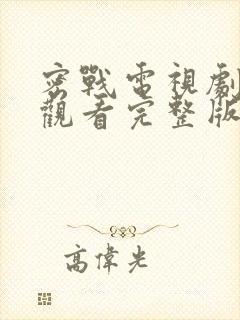 密戰電視劇
觀看完整版
高偉光